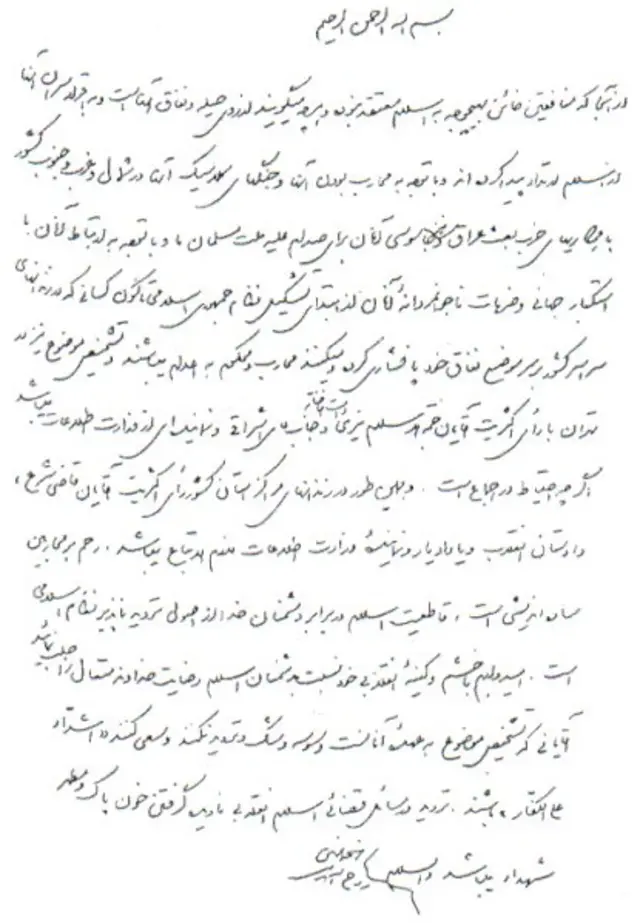 بسم الله الرحمن الرحیم
از آنجا که منافقین خائن به هیچ وجه به اسلام معتقد نبوده و هر چه میگویند از روی حیله و نفاق آنهاست و به اقرار سران آنها
از اسلام ارتداد پیدا کرده‌اند و با توجه به محارب بودن آنها و جنگهای کلاسیک آنها در شمال و غرب و جنوب کشور
با همکاریهای حزب بعث عراق و نیز جاسوسی آنان برای صدام علیه ملت مسلمان ما و با توجه به ارتباط آنان با
استکبار جهانی و ضربات ناجوانمردانهٔ آنان از ابتدای تشکیل نظام جمهوری اسلامی تا کنون کسانی که در زندانهای
سراسر کشور بر سر موضع نفاق خود پافشاری کرده و میکنند محارب و محکوم به اعدام میباشند و تشخیص موضوع نیز در
تهران با رأی اکثریت آقایان حجة الاسلام نیری دامت افاضاته و جناب آقای اشراقی و نماینده‌ای از وزارت اطلاعات میباشد
اگر چه احتیاط در اجماع است . و همین طور در زندانهای مراکز استان کشور رأی اکثریت آقایان قاضی شرع ،
دادستان انقلاب و یا دادیار و نمایندهٔ وزارت اطلاعات لازم الاتباع میباشد . رحم بر محاربین
ساده اندیشی است ، قاطعیت اسلام در برابر دشمنان خدا از اصول تردید ناپذیر نظام اسلامی
است . امیدوارم با خشم و کینهٔ انقلابی خود نسبت به دشمنان اسلام رضایت خداوند متعال را جلب نمائید
آقایانی که تشخیص موضوع به عهدهٔ آنان است وسوسه و شک و تردید نکنند و سعی کنند « اشداء
علی الکفار » باشند . تردید در مسائل قضائی اسلام انقلابی نادیده گرفتن خون پاک و مطهر
شهداء میباشد والسلام